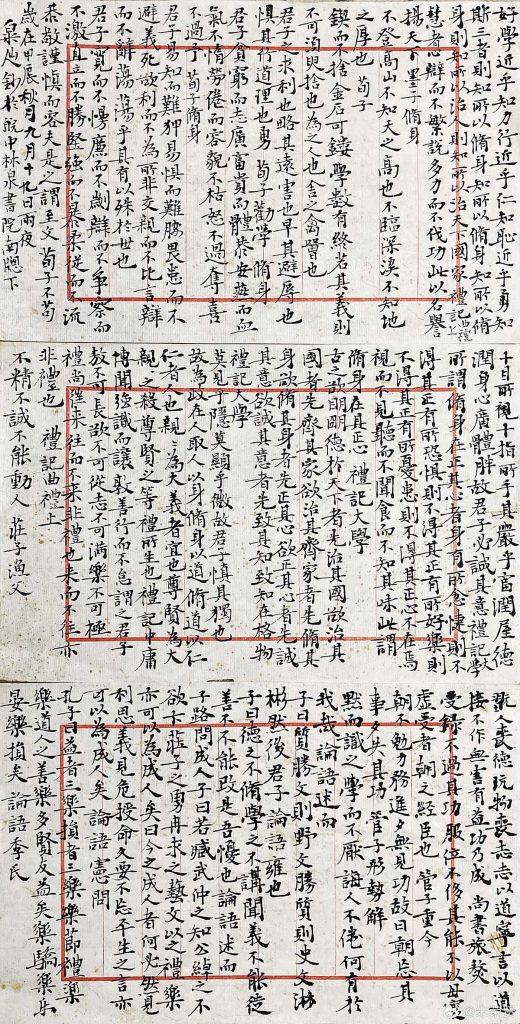 好學近乎知力行近乎仁知恥近乎勇知
斯三者則知所以脩身知所以脩身知所以脩
身則知所以治人則知所以治天下國家 禮記曲禮上
慧者心辯而不繁說多力而不伐功此以名譽
揚天下 墨子脩身
不登高山不知天之高也不臨深溪不知地
之厚也 荀子
鍥而不捨金石可鏤學數有終若其義則
不可須臾捨也為之人也舍之禽獸也
君子之求利也略其遠害也早其避辱也
懼其行道理也勇 荀子勸學 脩身
君子貧窮而志廣富貴而體恭安燕而血
氣不惰勞倦而容貌不枯怒不過奪喜
不過予 荀子脩身
君子易知而難狎易懼而難脅畏患而不
避義死欲利而不為所非交親而不比言辯
而不辭蕩蕩乎其有以殊於世也
君子寬而不僈廉而不劌辯而不爭察而
不激直立而不勝堅強而不暴柔從而不流
恭敬謹慎而容夫是之謂至文 荀子不苟
歲在甲辰秋月九月十九日雨夜
鈔於皖中林泉書院南牕下
十目所視十指所手其嚴乎富潤屋德
潤身心廣體胖故君子必誠其意禮記大學
所謂脩身在正其心者身有所忿懥則不
得其正有所恐懼則不得其正有所好樂則
不得其正有所憂患則不得其正心不在焉
視而不見聽而不聞食而不知其味此謂
脩身在正其心 禮記大學
古之欲明明德於天下者先治其國欲治其
國者先齊其家欲治其齊家者先脩其
身欲脩其身者先正其心欲正其心者先誠
其意欲誠其意者先致其知致知在格物
禮記大學
莫見乎隱莫顯乎微故君子慎其獨也
故為政在人取人以身脩身以道脩道以仁
仁者人也親〻為大義者宜也尊賢為大
親〻之殺尊賢之等禮所生也禮記中庸
博聞強識而讓敦善行而不怠謂之君子
敖不可長欲不可從志不可滿樂不可極
禮尚往來往而不來非禮也來而不往亦
非禮也 禮記曲禮上
不精不誠不能動人 莊子漁父
翫人喪德玩物喪志志以道寧言以道
接不作無害有益功乃成 尚書旅獒
受祿不過其功服位不侈其能不以毋實
虛受者朝之經臣也 管子重令
朝不勉力務進夕無見功故曰朝忘其
事夕失其功 管子形勢解
默而識之學而不厭誨人不倦何有於
我哉 論語述而
子曰質勝文則野文勝質則史文質彬
彬然後君子 論語雍也
子曰德之不脩學之不講聞義不能徙
善不不能改是吾憂也論語述而
子路問成人子曰若臧武仲之知公綽之不
欲卞莊子之勇冉求之藝文以之禮樂
亦可以為成人矣曰今之成人者何必然見
利思義見危授命久要不忘平生之言亦
可以為成人矣 論語憲問
孔子曰益者三樂損者三樂樂節禮樂
樂道人之善樂多賢友益矣樂驕樂樂
晏樂損矣 論語季氏